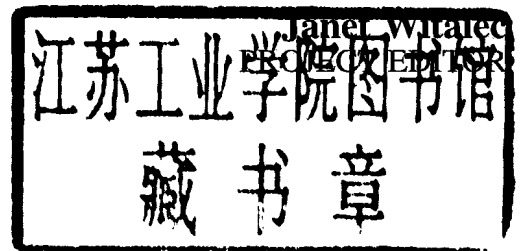 Janet Witalec
PROJECT EDITOR
江苏工业学院图书馆
藏书章